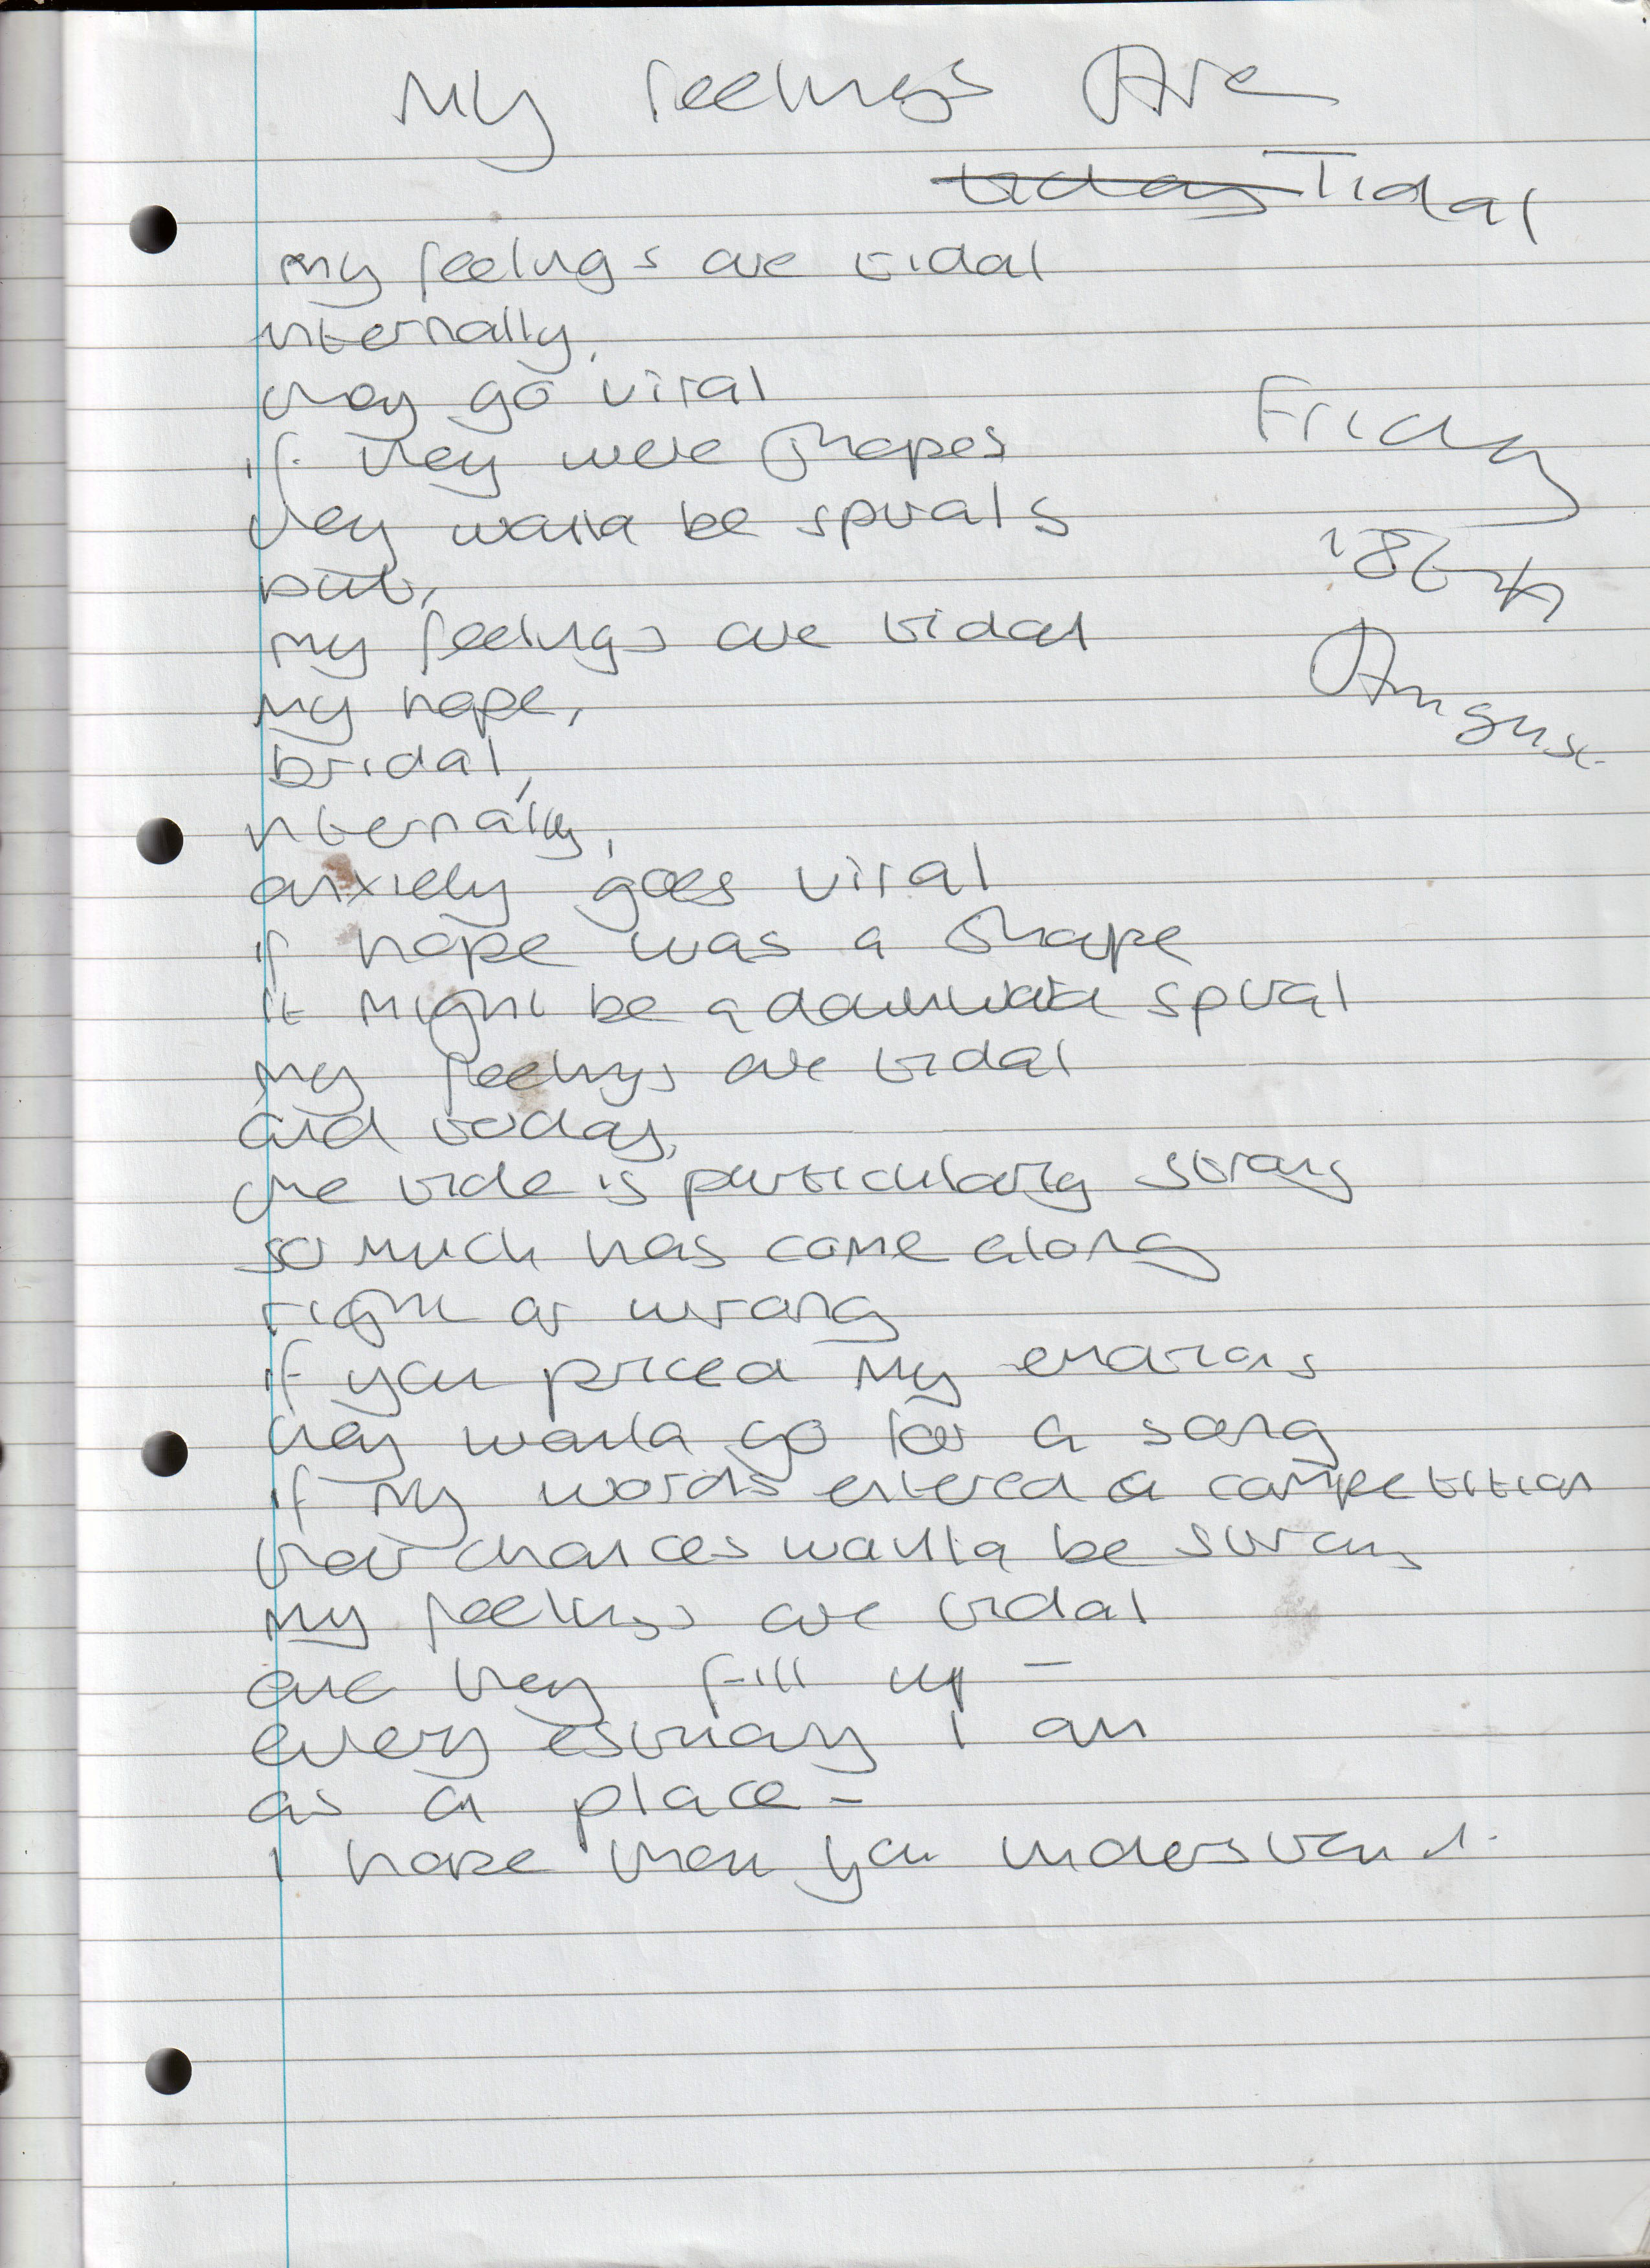 My feelings Are
today Tidal
my feelings are tidal
internally,
they go viral
if they were shapes
they would be spirals
but,
my feelings are tidal
my hope,
bridal,
internally,
anxiety goes viral
if hope was a shape
it might be a downward spiral
my feelings are tidal
and today,
the tide is particularly strong
so much has come along
right or wrong
if you priced my emotions
they would go for a song
if my words entered a competition
their chances would be strong
my feelings are tidal
and they fill up –
every estuary I am
as a place –
I hope then you understand.
Friday
18th
August